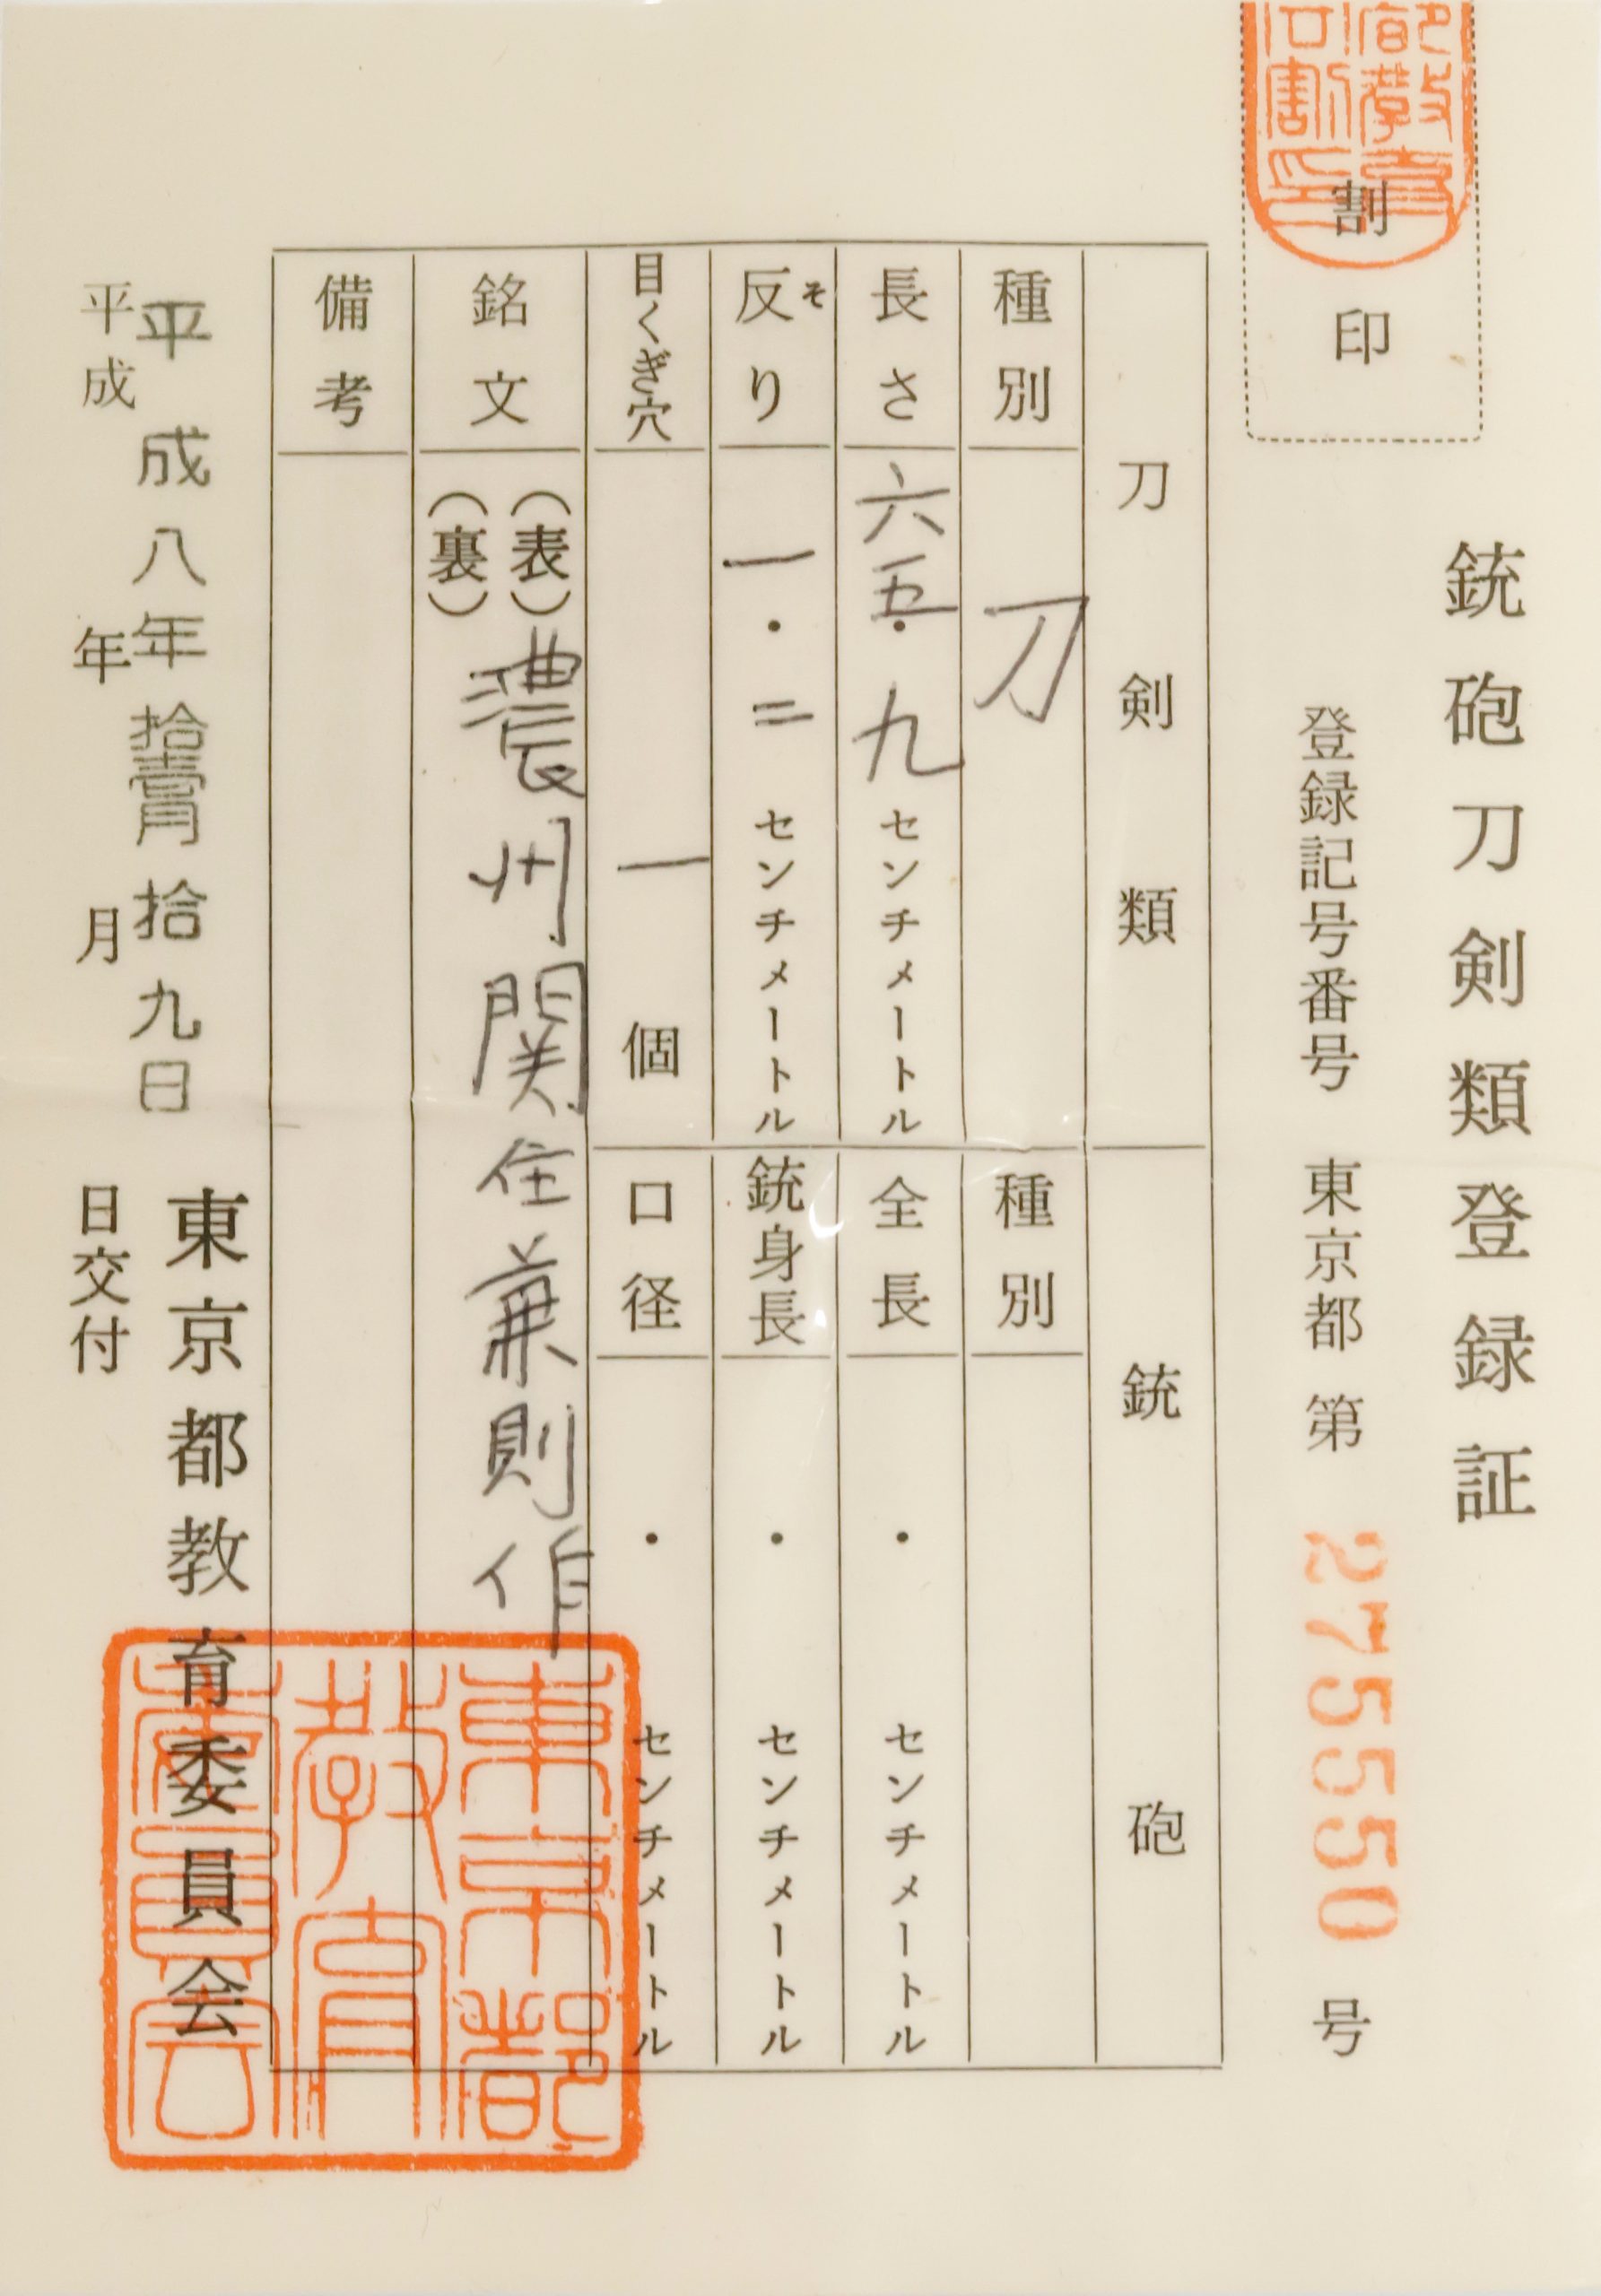 割印
銃砲刀剣類登録証
登録記号番号 東京都 第 275550 号
刀剣類
種別 刀
長さ 六五・九 センチメートル
そ
反り 一・二 センチメートル
目くぎ穴 一 個
銃砲
種別
全長 ・ センチメートル
銃身長 ・ センチメートル
口径 ・ センチメートル
銘文 (表) 濃州関住兼則作
(裏)
備考
東京都教育委員会
平成八年拾壹月拾九日
平成 年 月 日交付
東京都教育委員会